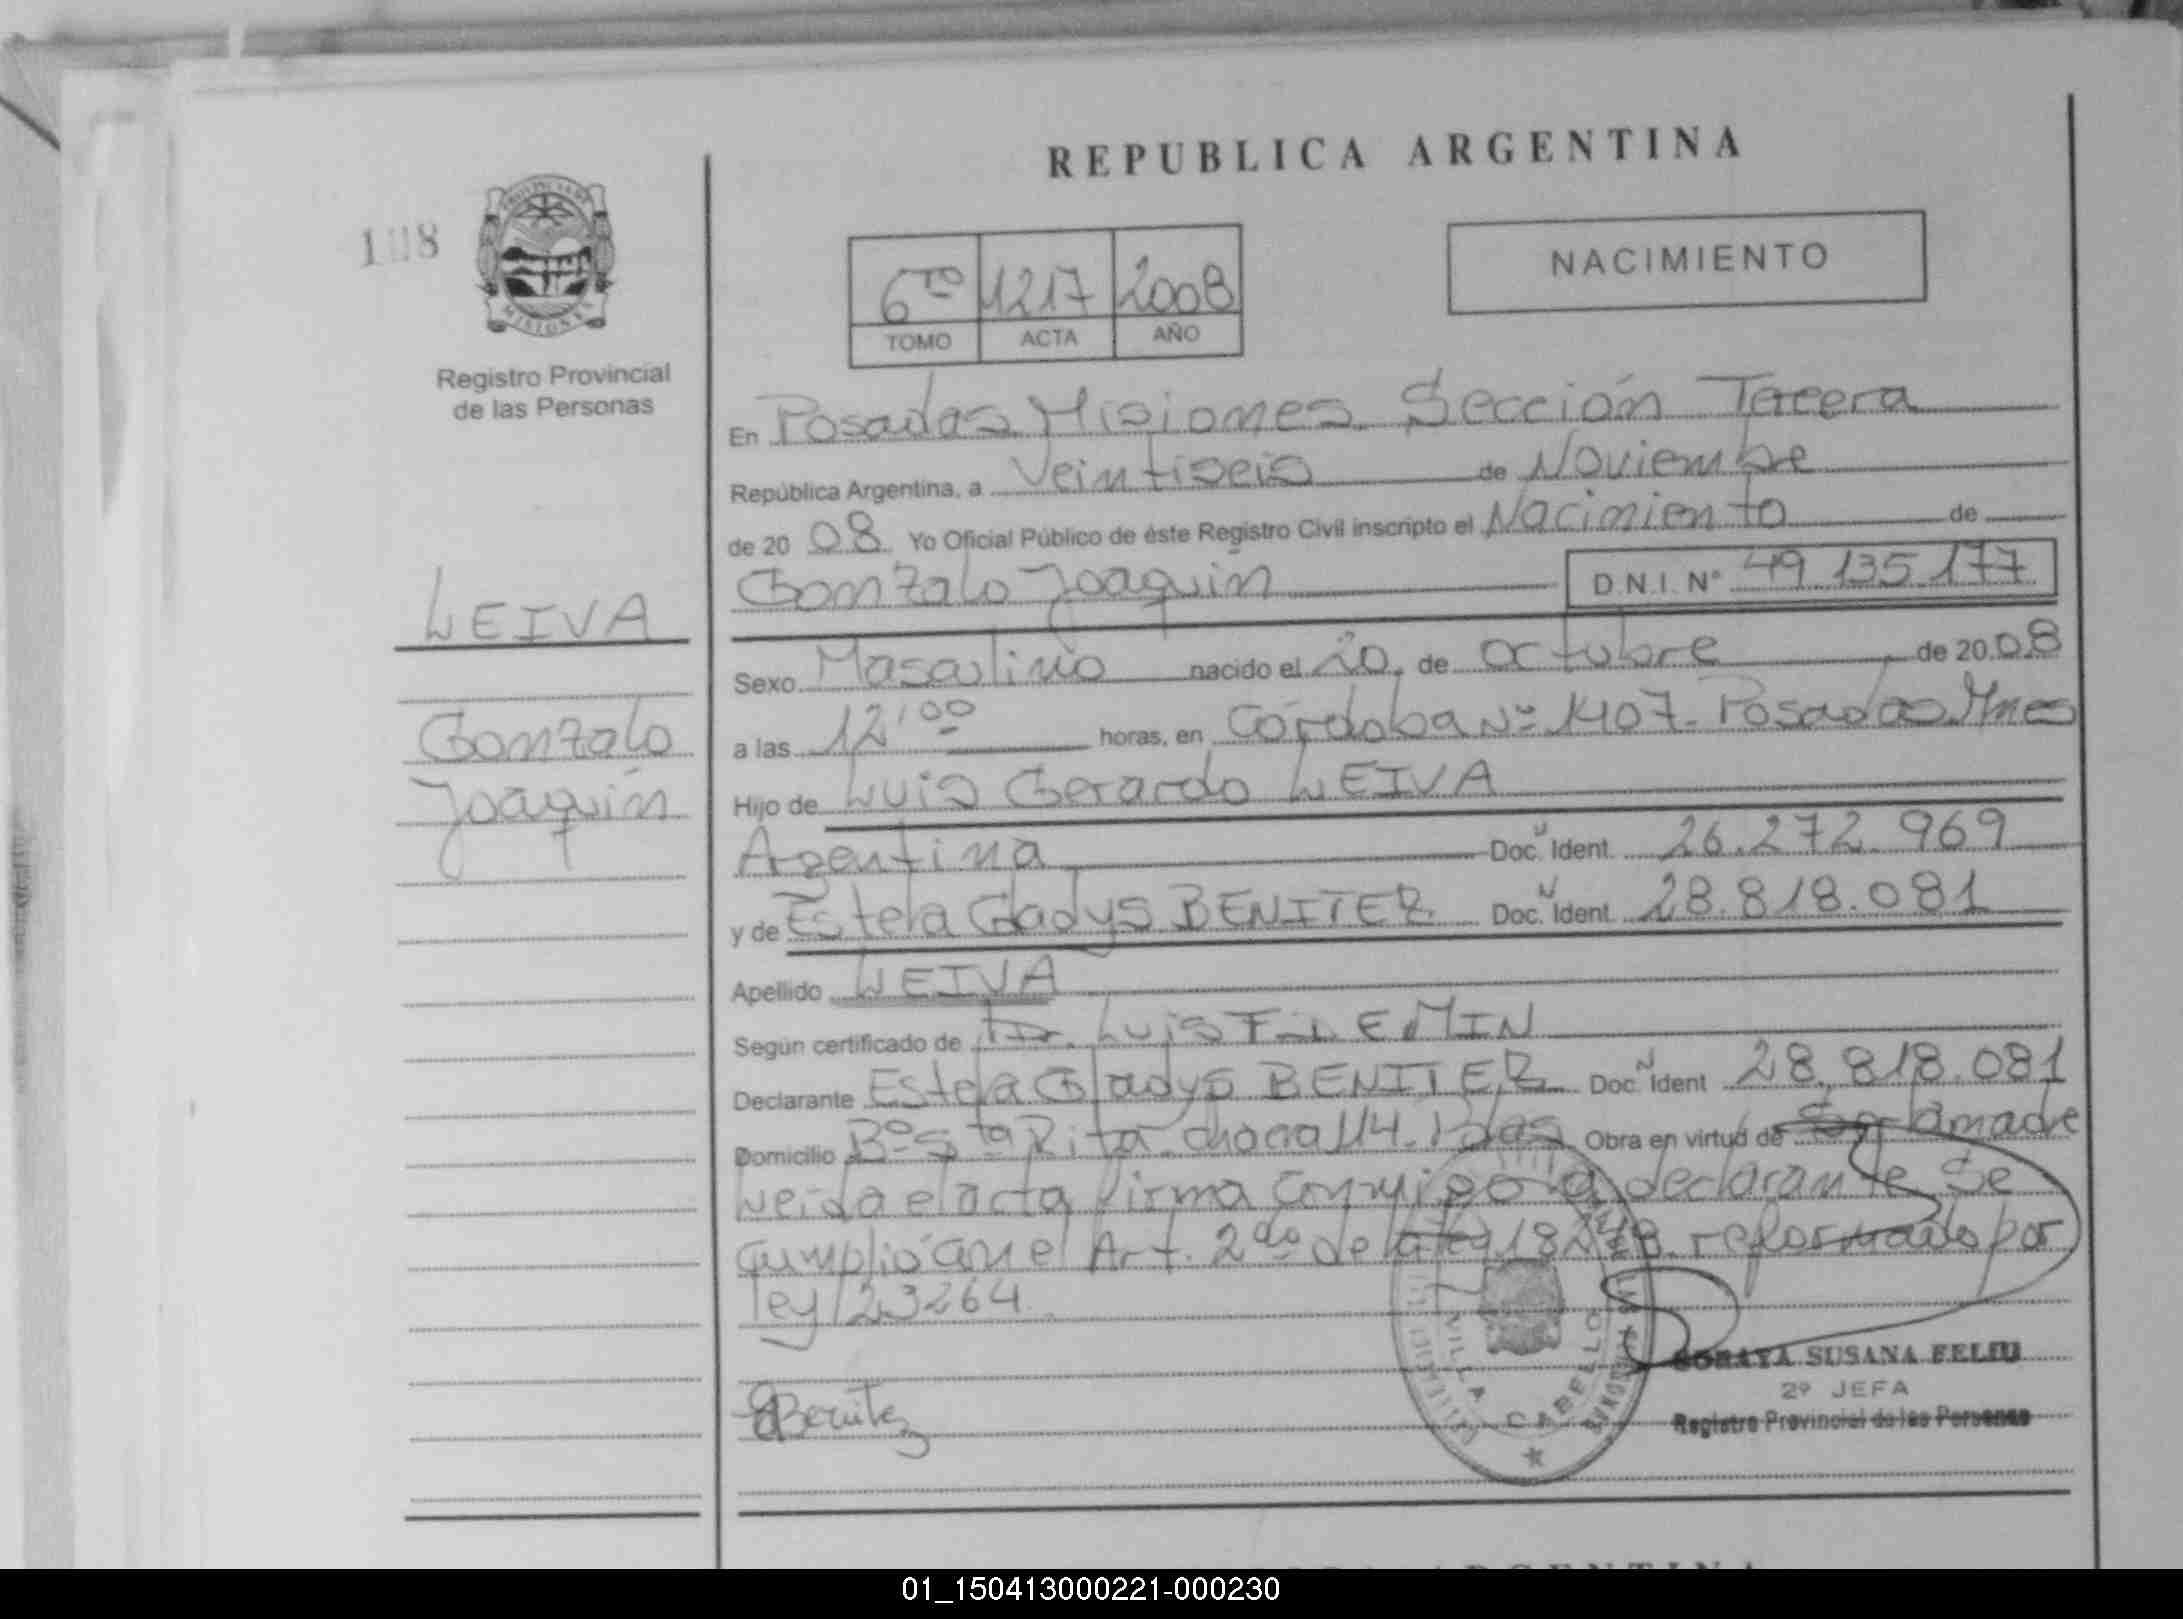 REPUBLICA ARGENTINA
108
PROVINCIA DE
MISIONES
Registro Provincial
de las Personas
6TO 1217 2008
TOMO ACTA AÑO
NACIMIENTO
LEIVA
Gonzalo
Joaquín
En Posadas Misiones Sección Tercera
República Argentina, a Veintiseis de Noviembre
de 20 08 Yo Oficial Público de éste Registro Civil inscripto el Nacimiento de
Gonzalo Joaquín D.N.I. Nº 49.135.177
Sexo Masculino nacido el 20 de octubre de 20 08
a las 12'00 horas, en Córdoba Nº 1407- Posadas Mnes
Hijo de Luis Gerardo LEIVA
Argentina Doc. Ident. 26.272.969
y de Estela Gladys BENITEZ Doc. Ident. 28.818.081
Apellido LEIVA
Según certificado de Dr. Luis FLEMIN
Declarante Estela Gladys BENITEZ Doc. Ident 28.818.081
Domicilio Bº Sta Rita chacra 114. Pdas Obra en virtud de la madre
Leída el acta firma conmigo la declarante Se
cumplió con el Art. 2do de la ley 18248 reformado por
ley 23264.
EBenitez
VILLA CABELLO
SORAYA SUSANA FELIU
2º JEFA
Registro Provincial de las Personas
01_150413000221-000230